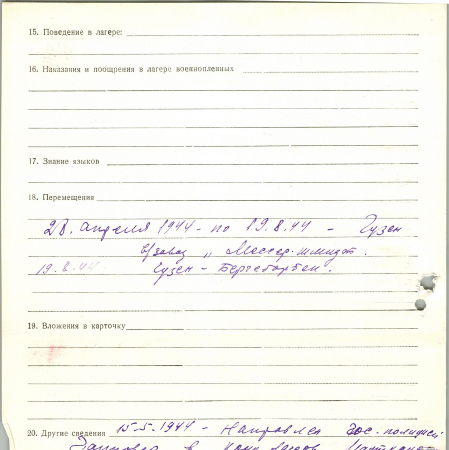 15. Поведение в лагере:
16. Наказания и поощрения в лагере военнопленных
17. Знание языков
18. Перемещения
28. апреля 1944 - по 19.8.44 - Гузен
завод „ Мессер-шмидт.
19.8.44 Гузен -
19. Вложения в карточку
20. Другие сведения 15.5.1944 - Направлен гос. полицией
в